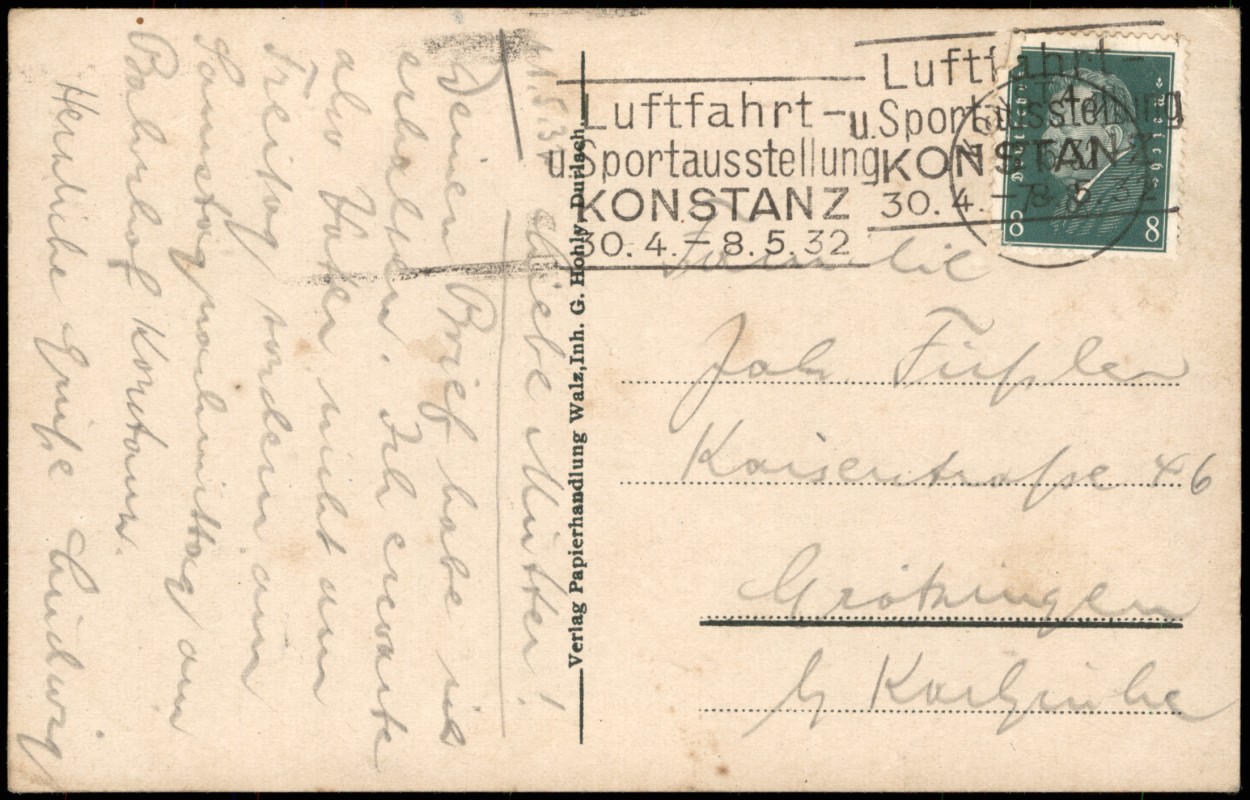 Luftfahrt-
u. Sportausstellung
KONSTANZ
30.4.-8.5.32
Luftfahrt-
u. Sportausstellung
KONSTAN
30.4.-8.5.32
Deutsches Reich
8 8
Verlag Papierhandlung Walz, Inh. G. Hohly, Durlach.
Liebe Mutter!
Deinen Brief habe ich
erhalten. Ich erwarte
also Vater nicht am
Freitag sondern am
Samstagnachmittag am
Bahnhof Konstanz.
Herzliche Grüße Ludwig
Familie
Jak. Füßler
Kaiserstraße 46
Grötzingen
b/ Karlsruhe